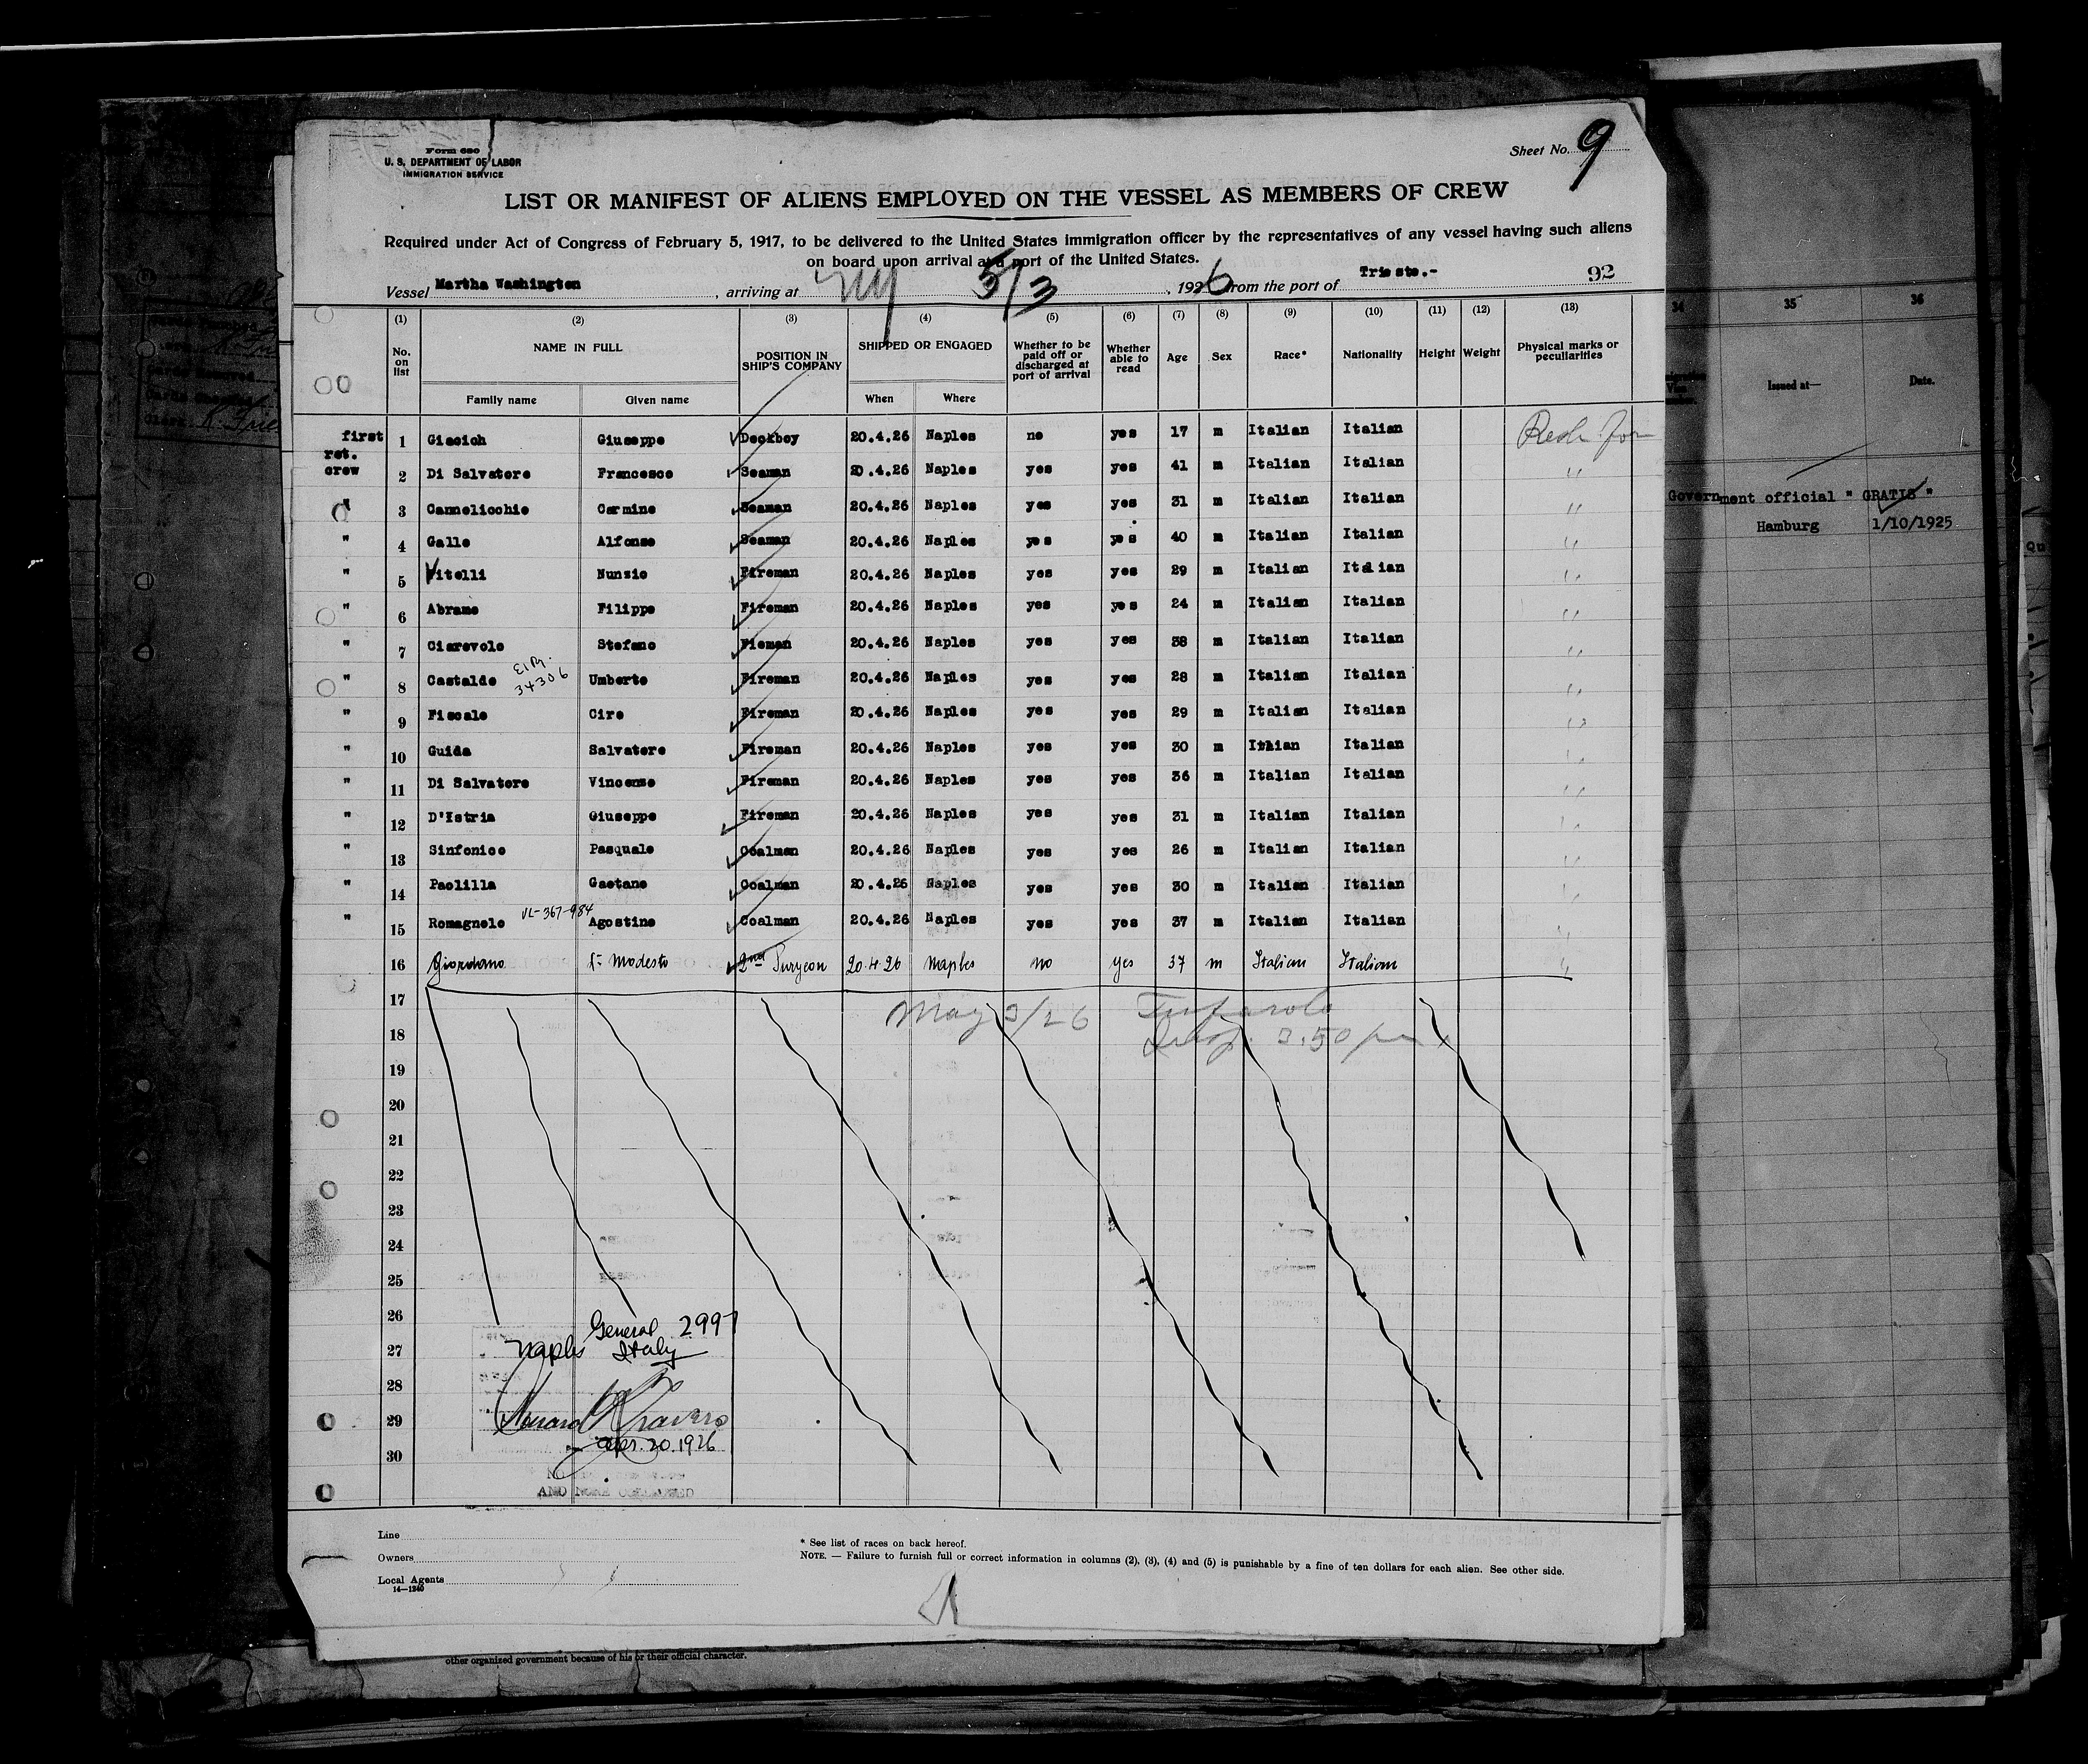 Form 680
U. S. DEPARTMENT OF LABOR
IMMIGRATION SERVICE
Sheet No. 9
LIST OR MANIFEST OF ALIENS EMPLOYED ON THE VESSEL AS MEMBERS OF CREW
Required under Act of Congress of February 5, 1917, to be delivered to the United States immigration officer by the representatives of any vessel having such aliens
on board upon arrival at a port of the United States.
Vessel Martha Washington, arriving at NY 5/3, 1926 from the port of Trieste.- 92
(1) (2) (3) (4) (5) (6) (7) (8) (9) (10) (11) (12) (13)
No. on list NAME IN FULL POSITION IN SHIP'S COMPANY SHIPPED OR ENGAGED Whether to be paid off or discharged at port of arrival Whether able to read Age Sex Race* Nationality Height Weight Physical marks or peculiarities
Family name Given name When Where
first 1 Giacich Giuseppe Deckboy 20.4.26 Naples no yes 17 m Italian Italian
ret. crew 2 Di Salvatore Francesco Seaman 20.4.26 Naples yes yes 41 m Italian Italian "
" 3 Cannelicchio Carmine Seaman 20.4.26 Naples yes yes 31 m Italian Italian "
" 4 Gallo Alfonso Seaman 20.4.26 Naples yes yes 40 m Italian Italian "
" 5 Vitelli Nunzio Fireman 20.4.26 Naples yes yes 29 m Italian Italian "
" 6 Abramo Filippo Fireman 20.4.26 Naples yes yes 24 m Italian Italian "
" 7 Ciarevolo Stefano Fieman 20.4.26 Naples yes yes 38 m Italian Italian "
" 8 Castaldo 34306 Umberto Fireman 20.4.26 Naples yes yes 28 m Italian Italian "
" 9 Fiscale Ciro Fireman 20.4.26 Naples yes yes 29 m Italian Italian "
" 10 Guida Salvatore Fireman 20.4.26 Naples yes yes 30 m Italian "
" 11 Di Salvatore Vincenso Fireman 20.4.26 Naples yes yes 36 m Italian Italian "
" 12 D'Istria Giuseppe Fireman 20.4.26 Naples yes yes 31 m Italian Italian "
" 13 Sinfonico Pasquale Coalman 20.4.26 Naples yes yes 26 m Italian Italian "
" 14 Paolilla Gaetano Coalman 20.4.26 Naples yes yes 30 m Italian Italian "
" 15 Romagnolo VL-367-984 Agostino Coalman 20.4.26 Naples yes yes 37 m Italian Italian "
16 Giordano Modesto 2nd Surgeon 20.4.26 Naples no yes 37 m Italian Italian "
17 May 3/26
18 3.50 pm
19
20
21
22
23
24
25
26 General 2997
27 Naples Italy
28
29
30 Apr. 20. 1926
Line
Owners
Local Agents
14—1240
* See list of races on back hereof.
NOTE. — Failure to furnish full or correct information in columns (2), (3), (4) and (5) is punishable by a fine of ten dollars for each alien. See other side.
other organized government because of his or their official character.
34 35 36
Issued at— Date.
Government official " GRATIS "
Hamburg 1/10/1925